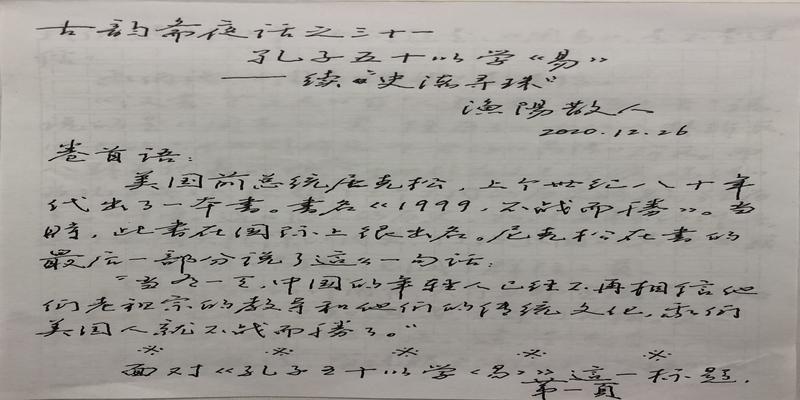 古韵斋夜话之三十一
孔子五十以学《易》
——续"史海寻珠"
渔陽散人
2020.12.26
卷首语：
美国前总统尼克松，上个世纪八十年
代出了一本書。書名《1999，不战而勝》。当
時，此書在国际上很出名。尼克松在書的
最后一部分说了這么一句话：
"当有一天，中国的年轻人已经不再相信他
们老祖宗的教导和他们的传统文化，我们
美国人就不战而勝了。"
※ ※ ※ ※ ※
面对《孔子五十以学《易》》這一标题，
第一頁